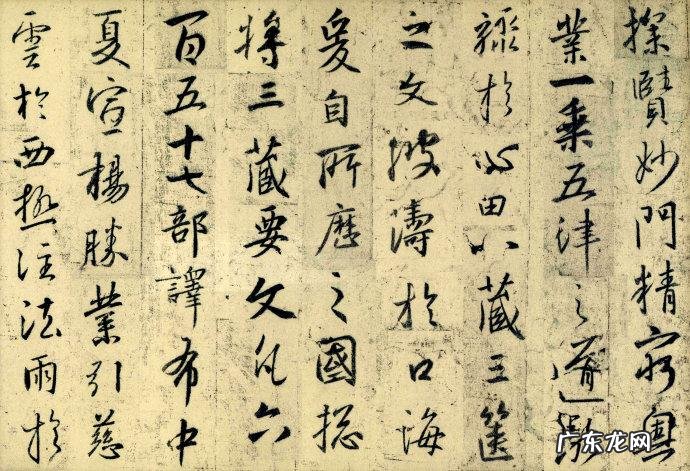 探賾妙門精窮奧
業一乘五津之道馳
驟於心田八藏三篋
之文波濤於口海
爰自所歷之國捴
將三藏要文凡六
百五十七部譯布中
夏宣楊勝業引慈
雲於西極注法雨於
广东龙网